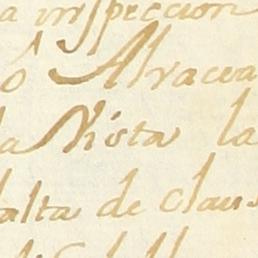 a inspeccion
ó Alvacea
la Vista la
falta de clau